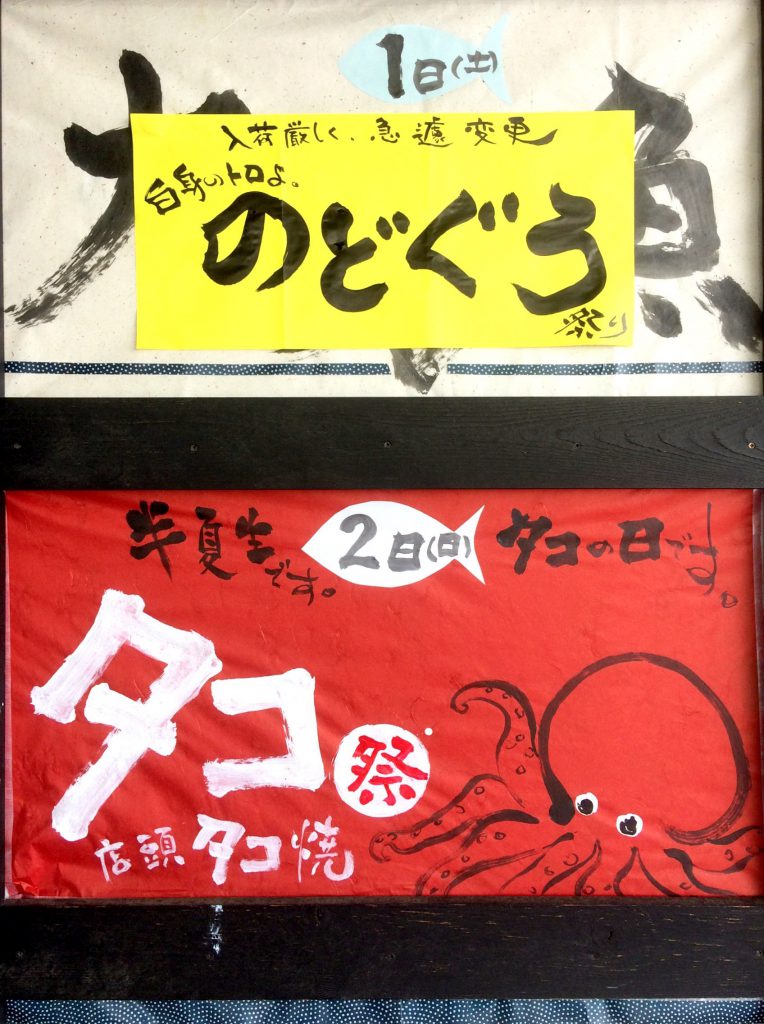 1日(土)
入荷厳しく、急遽変更
白身のトロよ。
のどぐろ
祭り
半夏生です。
2日(日)
タコの日です。
タコ
祭
店頭タコ焼